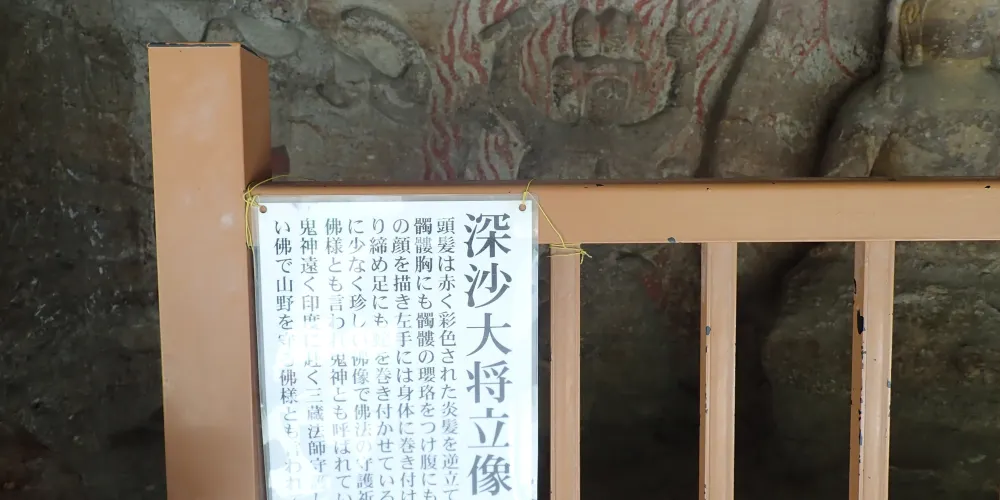 深沙大将立像
頭髪は赤く彩色された炎髪を逆立て
髑髏胸にも髑髏の瓔珞をつけ腹にも
の顔を描き左手には身体に巻き付け
り締め足にも を巻き付かせている
に少なく珍しい佛像で佛法の守護祈
佛様とも言われ鬼神とも呼ばれてい
鬼神遠く印度に赴く三蔵法師守
い佛で山野を守る佛様とも言われ